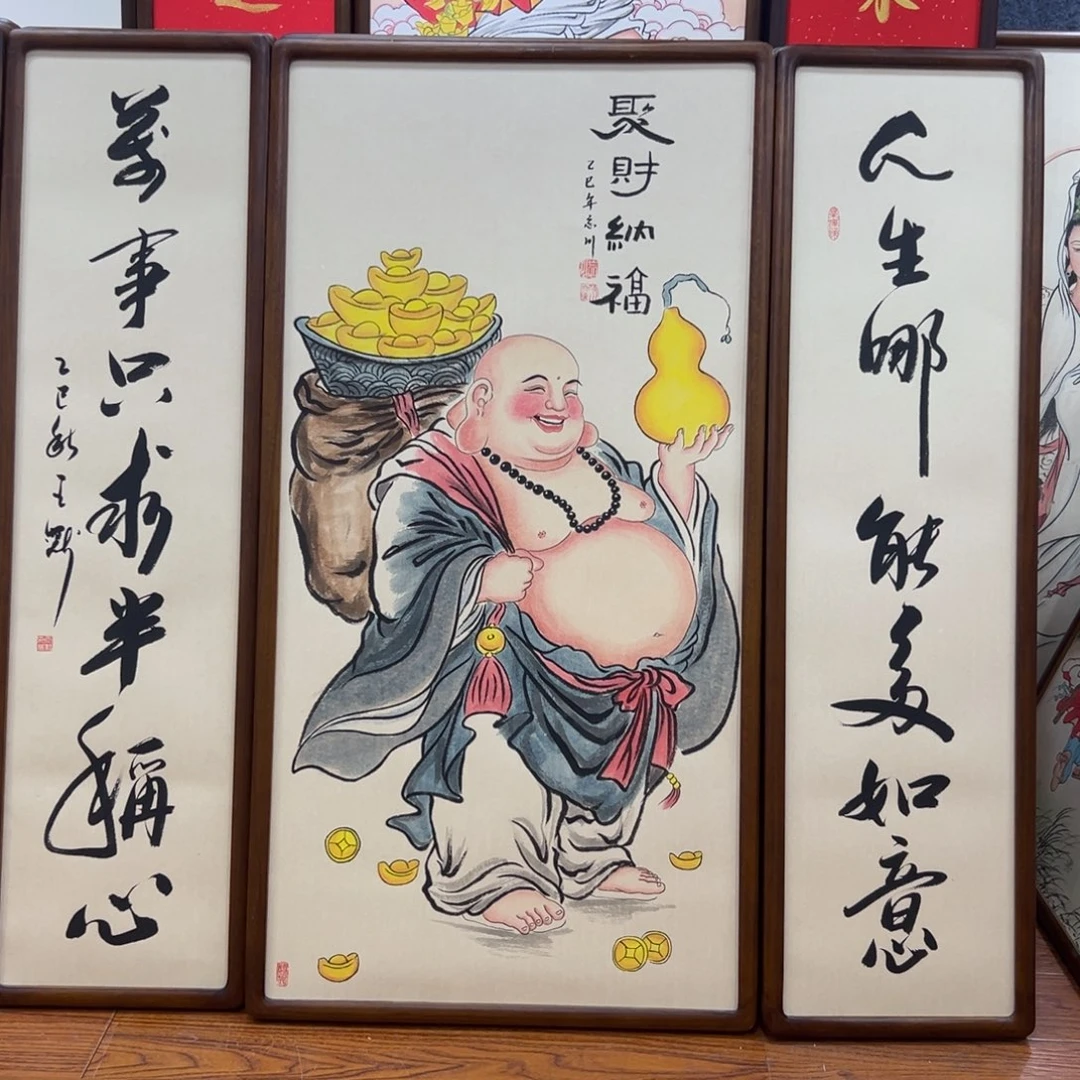 人生哪能多如意
聚財納福
乙巳年
萬事只求半稱心
乙巳秋王